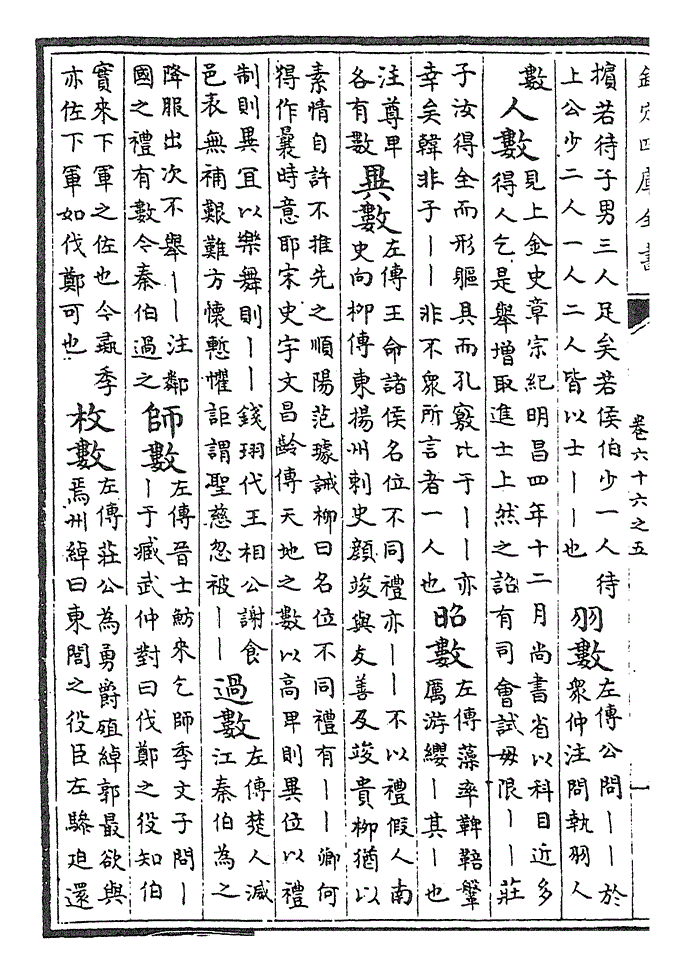 欽定四庫全書
卷六十六之五
一
擯若待子男三人足矣若侯伯少一人待
上公少二人一人二人皆以士丨丨也
羽數
左傳公問丨丨於
衆仲注問執羽人
數
人數
見上金史章宗紀明昌四年十二月尚書省以科目近多
得人乞是舉增取進士上然之詔有司會試毋限丨丨莊
子汝得全而形軀具而孔竅比于丨丨亦
幸矣韓非子丨丨非不衆所言者一人也
昭數
左傳藻率鞞鞛鞶
厲游纓丨其丨也
注尊卑
各有數
異數
左傳王命諸侯名位不同禮亦丨丨不以禮假人南
史向栁傳東揚州刺史顔竣與友善及竣貴栁猶以
素情自許不推先之順陽范璩誡栁曰名位不同禮有丨丨卿何
得作曩時意耶宋史宇文昌齡傳天地之數以高卑則異位以禮
制則異宜以樂舞則丨丨錢珝代王相公謝食
邑表無補艱難方懷慙懼詎謂聖慈忽被丨丨
過數
左傳楚人滅
江秦伯為之
降服出次不舉丨丨注鄰
國之禮有數今秦伯過之
師數
左傳晉士魴來乞師季文子問丨
丨于臧武仲對曰伐鄭之役知伯
實來下軍之佐也今彘季
亦佐下軍如伐鄭可也
枚數
左傳莊公為勇爵殖綽郭最欲與
焉州綽曰東閭之役臣左驂迫還